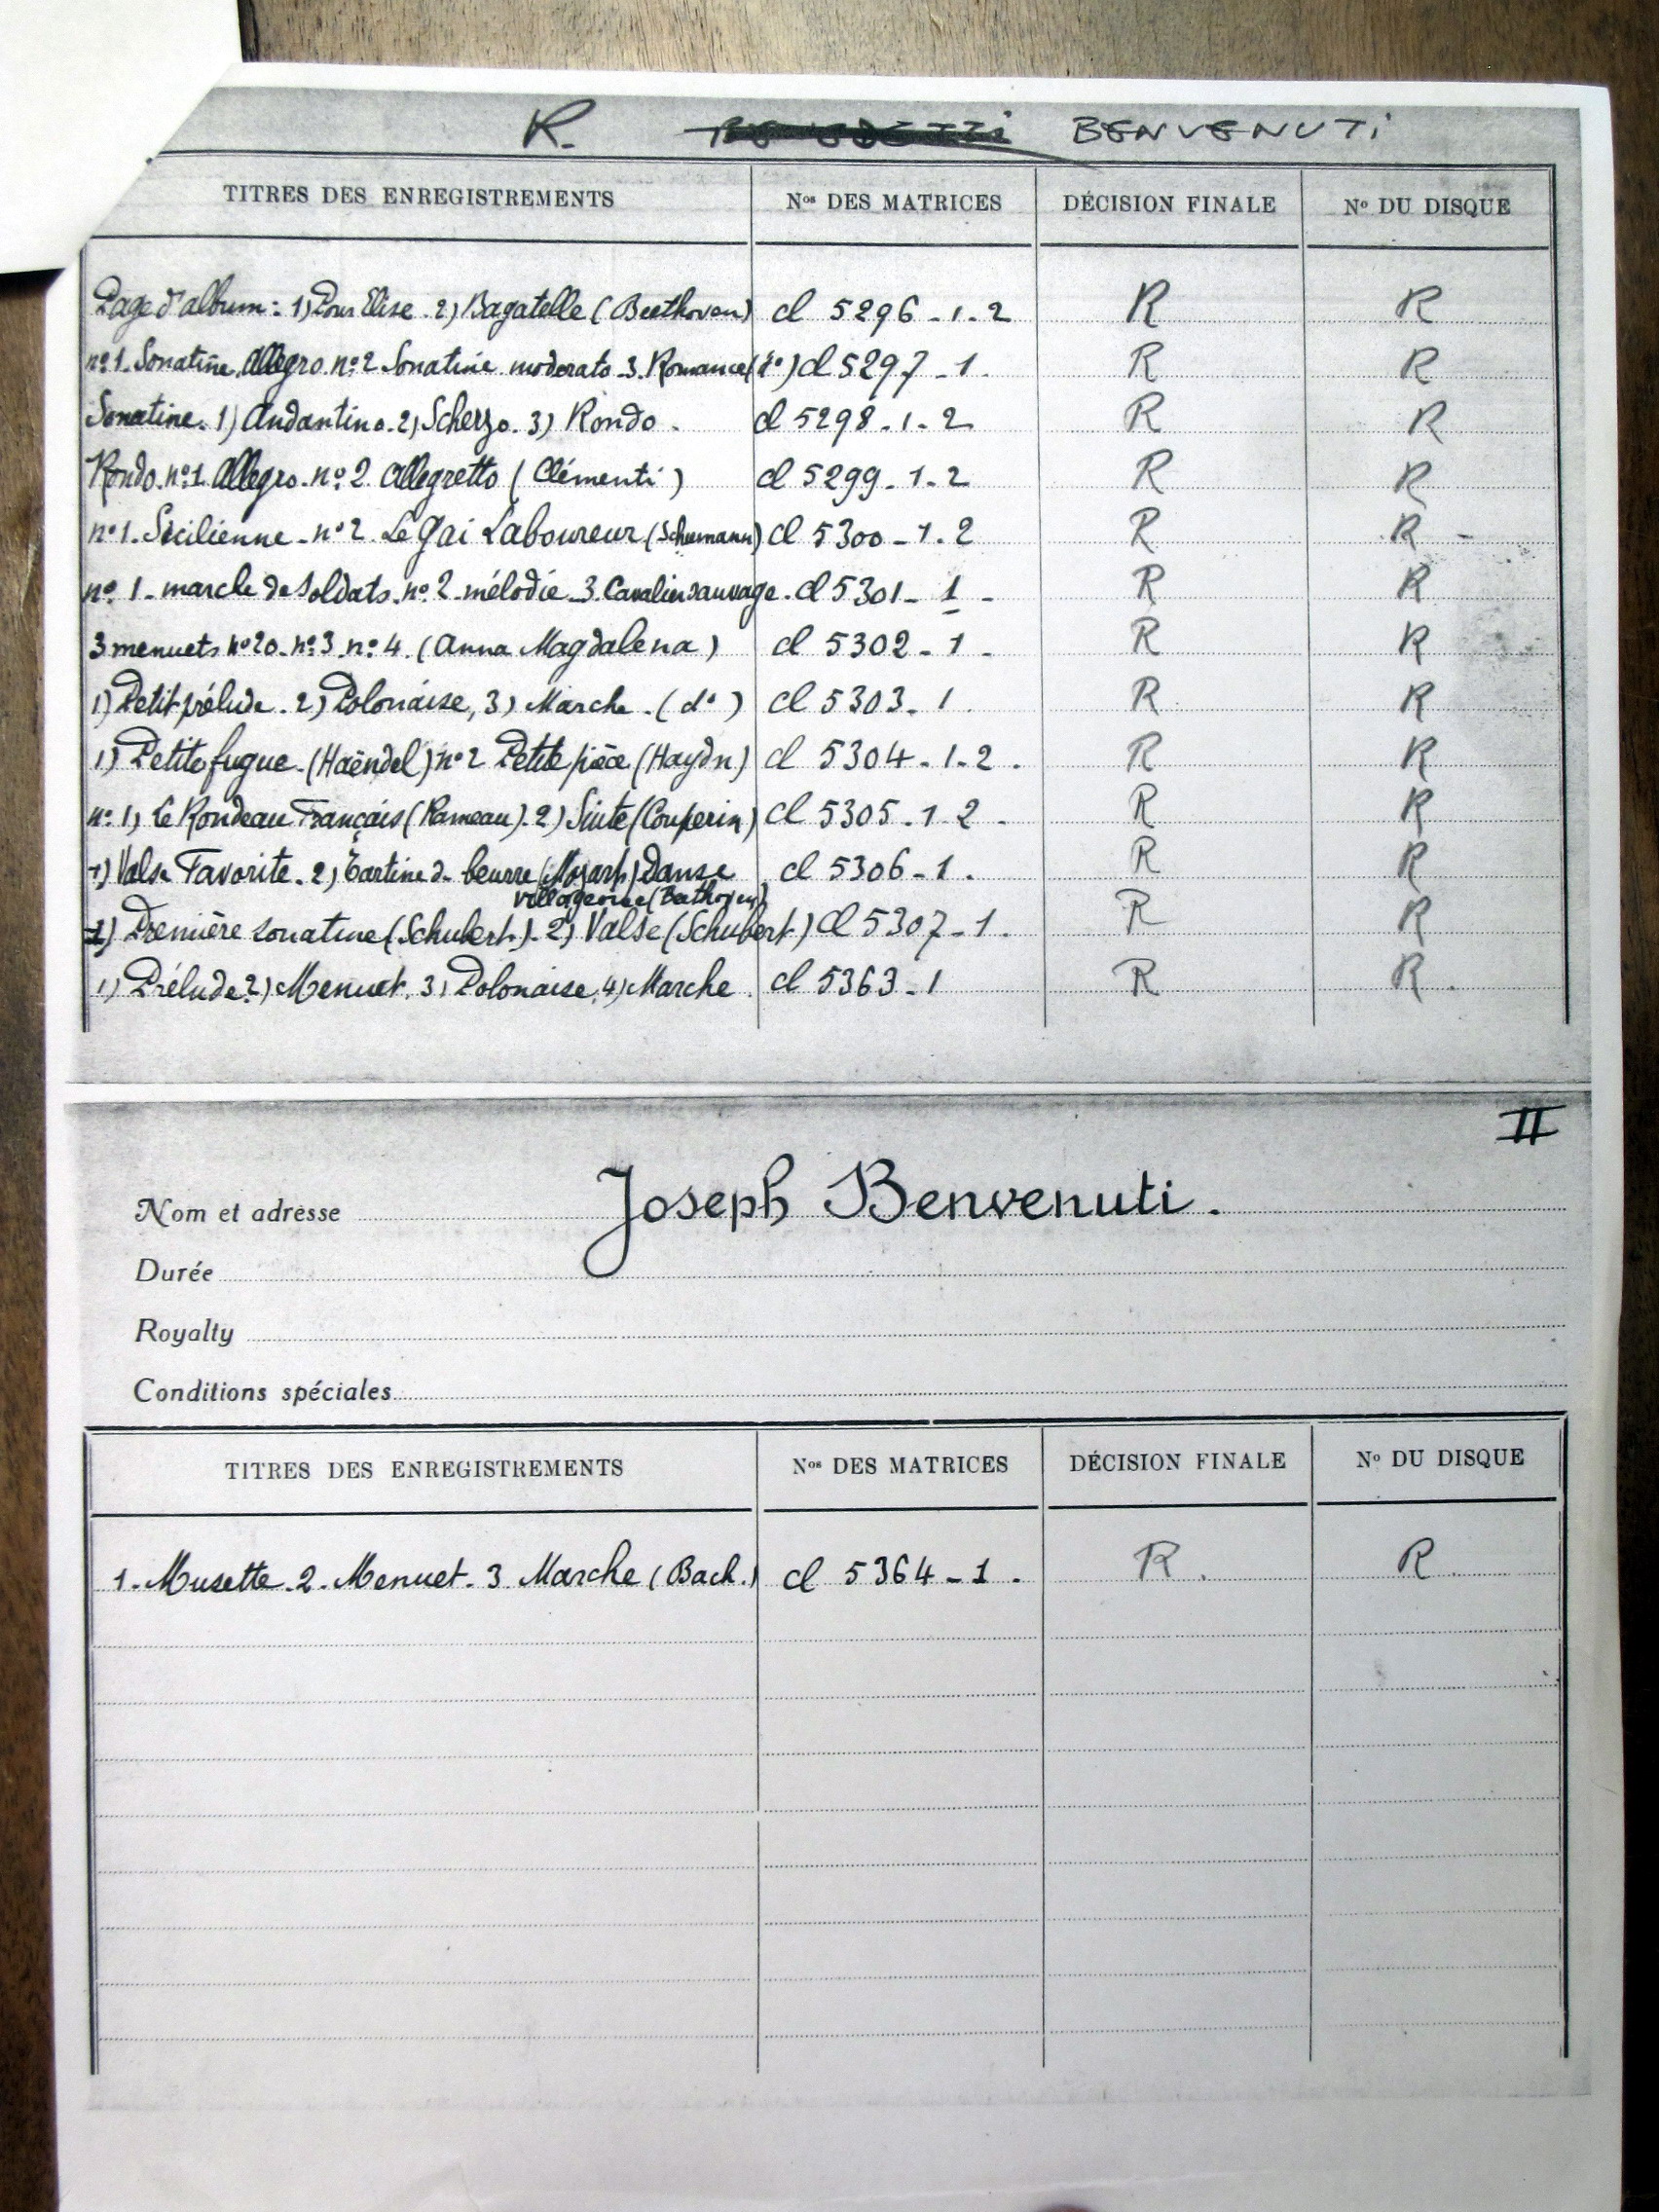 R. BENVENUTI
TITRES DES ENREGISTREMENTS Nos DES MATRICES DÉCISION FINALE No DU DISQUE
Page d'album : 1) Pour Elise . 2) Bagatelle ( Beethoven) cl 5296 - 1 . 2 R R
nº 1. Sonatine Allegro. nº 2 Sonatine moderato . 3. Romance (dº) cl 5297 - 1 . R R
Sonatine . 1) Andantino . 2) Scherzo . 3) Rondo . cl 5298 . 1 . 2 R R
Rondo . nº 1 Allegro . nº 2 Allegretto ( Clémenti ) cl 5299 . 1 . 2 R R
nº 1. Sicilienne - nº 2 Le Gai Laboureur (Schumann) cl 5300 - 1 . 2 R R -
nº 1 - marche de Soldats . nº 2 mélodie . 3. Cavalier sauvage . cl 5301 - 1 - R R
3 menuets nº 20 - nº 3 . nº 4 . (Anna Magdalena ) cl 5302 - 1 - R R
1) Petit prélude . 2) Polonaise, 3) Marche . ( dº ) cl 5303 . 1 . R R
1) Petite fugue . (Haëndel) nº 2 Petite pièce (Haydn) cl 5304 . 1 . 2 . R R
nº 1) Le Rondeau Français (Rameau) . 2) Suite (Couperin) cl 5305 . 1 2 . R R
1) Valse Favorite . 2) Tartine de beurre (Mozart) Danse cl 5306 - 1 . R R
villageoise (Beethoven)
1) Première sonatine (Schubert) . 2) Valse (Schubert) cl 5307 - 1 . R R
1) Prélude 2) Menuet . 3) Polonaise . 4) Marche . cl 5363 - 1 R R .
II
Nom et adresse Joseph Benvenuti .
Durée
Royalty
Conditions spéciales
TITRES DES ENREGISTREMENTS Nos DES MATRICES DÉCISION FINALE No DU DISQUE
1 - Musette . 2 - Menuet . 3 Marche ( Bach . ) cl 5364 - 1 . R . R .